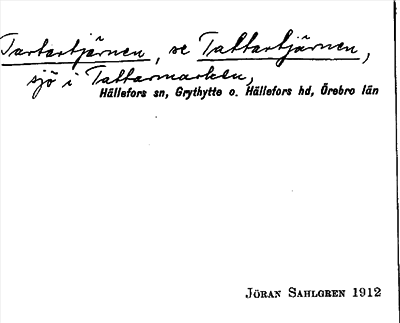 Tartartjärnen, se Tattartjärnen,
sjö i Tattarmarken,
Hällefors sn, Grythytte o. Hällefors hd, Örebro län
Jöran Sahlgren 1912